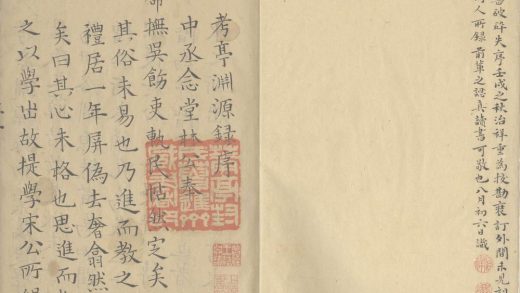 碎失序壬戌之秋治祥重為挍勘裝訂外間未見
人所錄前輩之認真讀書可敬也八月初六日識
考亭淵源錄序
中丞念堂林公奉
命撫吳飭吏軌民帖然定矣
其俗未易也乃進而教之
禮居一年屏偽去奢翕然
矣曰其心未格也思進而
之以學出故提學宋公所